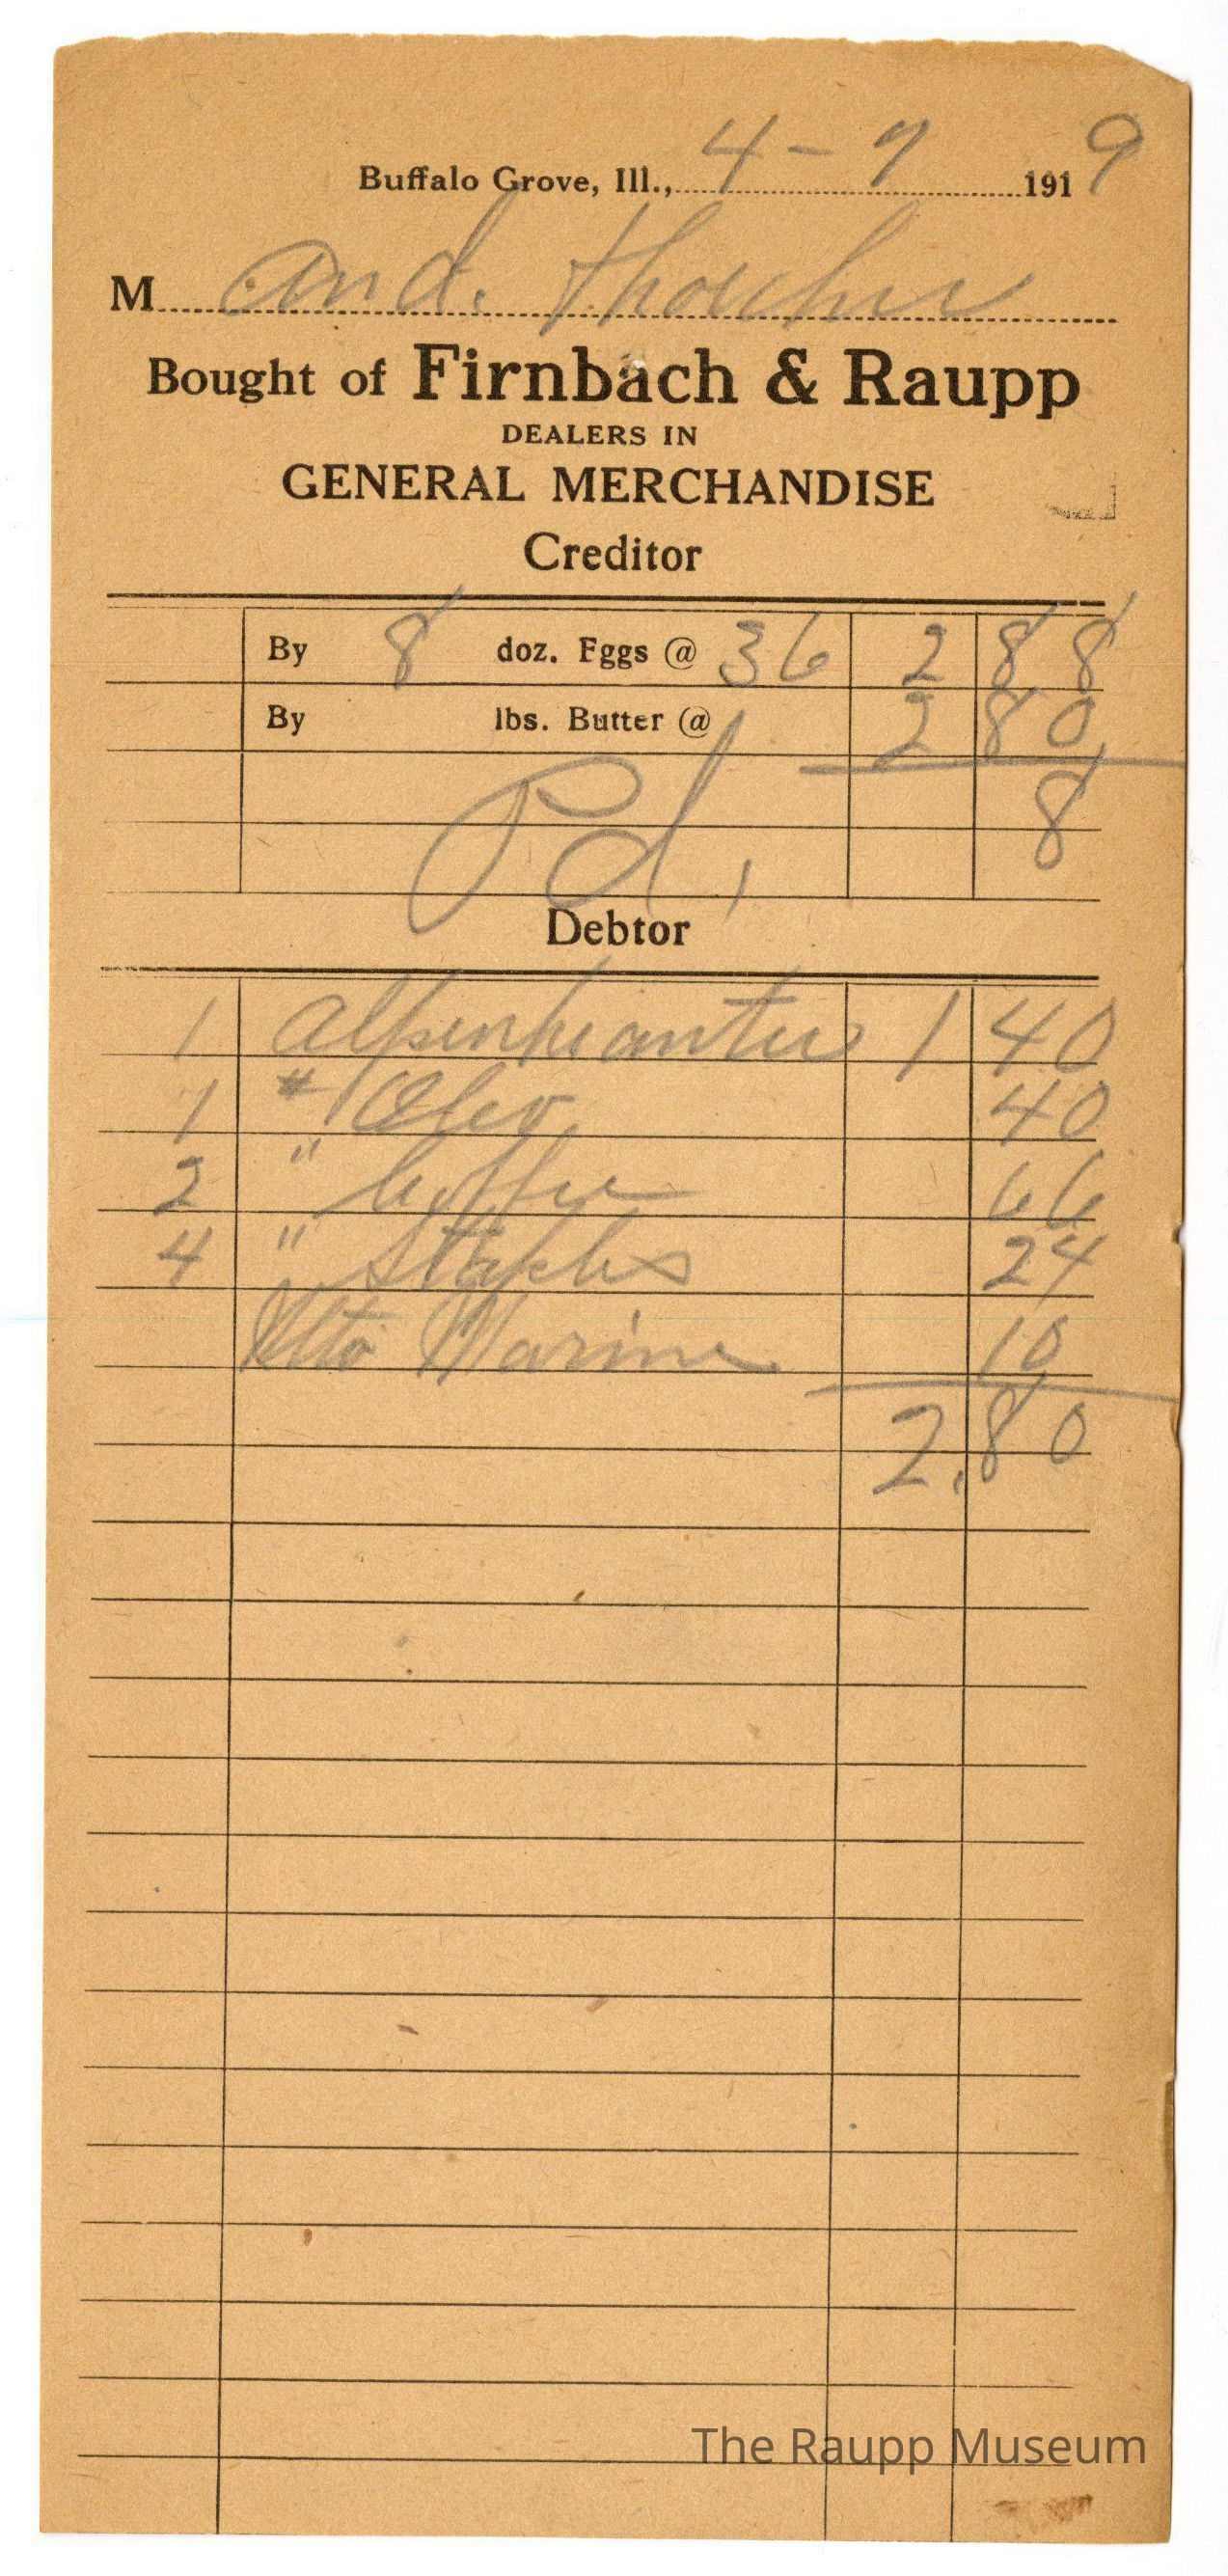 Buffalo Grove, Ill., 4-9 1919
M And.
Bought of Firnbach & Raupp
DEALERS IN
GENERAL MERCHANDISE
Creditor
By 8 doz. Eggs @ 36 2 88
By lbs. Butter @ 2 80
8
Pd.
Debtor
1 Alpenkrauter 1 40
1 # Oleo 40
2 " Coffee 66
4 " Staples 24
10
2.80
The Raupp Museum